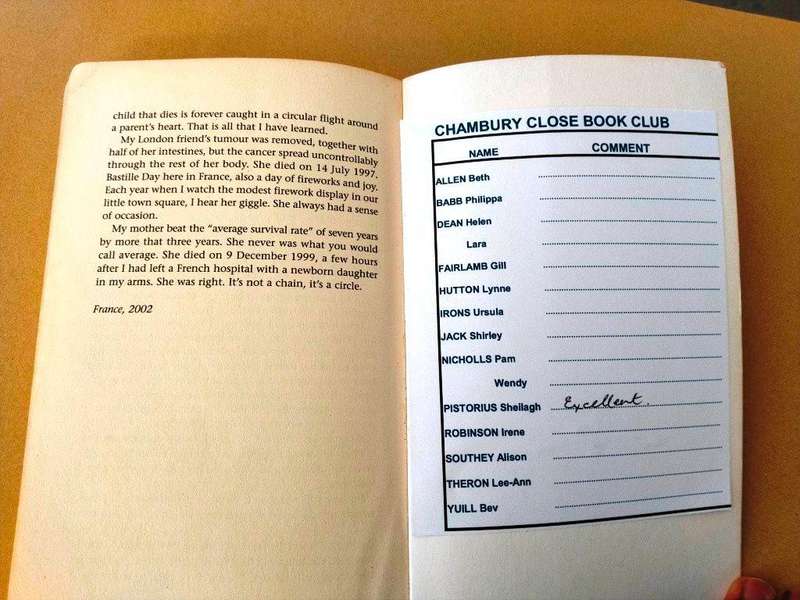 child that dies is forever caught in a circular flight around
a parent's heart. That is all that I have learned.
My London friend's tumour was removed, together with
half of her intestines, but the cancer spread uncontrollably
through the rest of her body. She died on 14 July 1997,
Bastille Day here in France, also a day of fireworks and joy.
Each year when I watch the modest firework display in our
little town square, I hear her giggle. She always had a sense
of occasion.
My mother beat the "average survival rate" of seven years
by more that three years. She never was what you would
call average. She died on 9 December 1999, a few hours
after I had left a French hospital with a newborn daughter
in my arms. She was right. It's not a chain, it's a circle.
France, 2002
CHAMBURY CLOSE BOOK CLUB
NAME COMMENT
ALLEN Beth
BABB Philippa
DEAN Helen
Lara
FAIRLAMB Gill
HUTTON Lynne
IRONS Ursula
JACK Shirley
NICHOLLS Pam
Wendy
PISTORIUS Sheilagh Excellent.
ROBINSON Irene
SOUTHEY Alison
THERON Lee-Ann
YUILL Bev